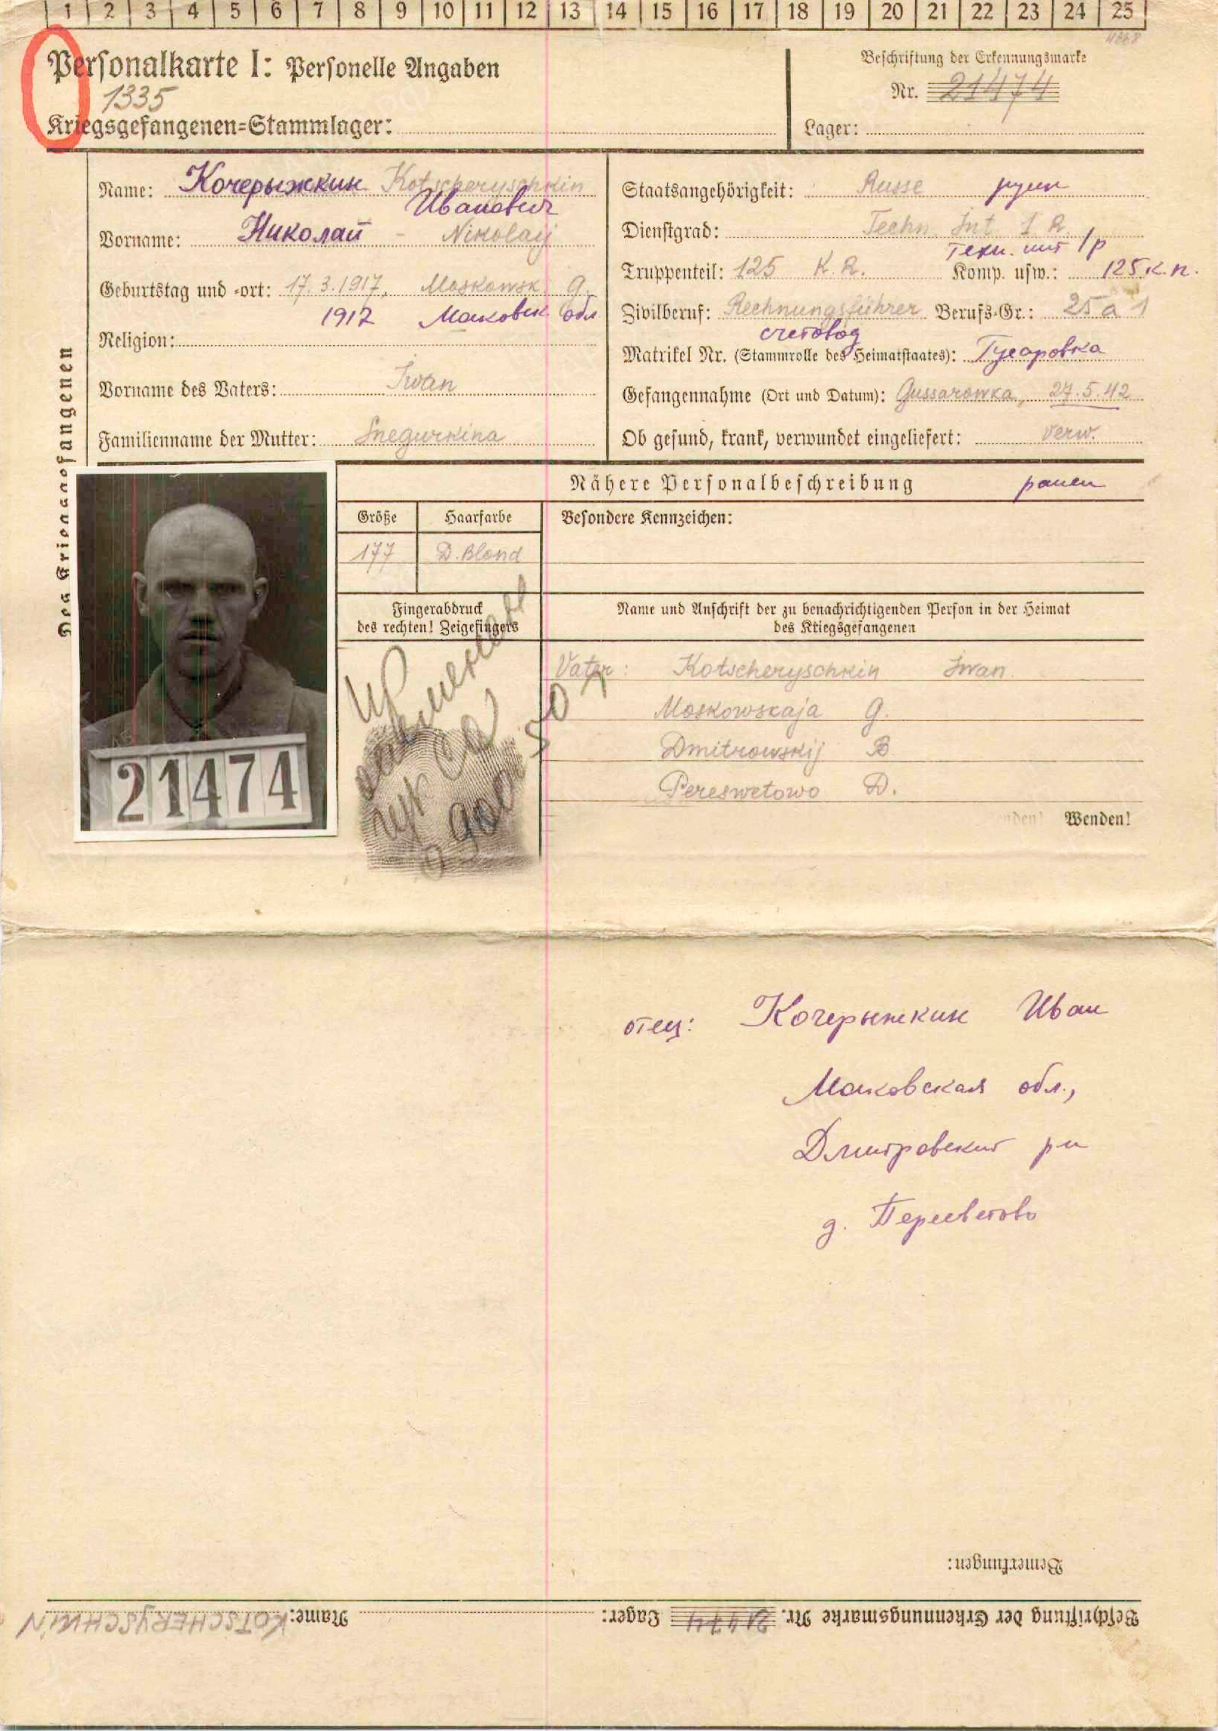 1 2 3 4 5 6 7 8 9 10 11 12 13 14 15 16 17 18 19 20 21 22 23 24 25
Personalkarte I: Personelle Angaben
1335
Kriegsgefangenen=Stammlager:
Beschriftung der Erkennungsmarke
Nr. 21474
Lager:
Des Kriegsgefangenen
Name: Кочерыжкин Kotscheryschkin
Иванович
Vorname: Николай - Nikolaij
Geburtstag und =ort: 17.3.1917, Moskowsk. g.
1917 Московск обл
Religion:
Vorname des Vaters: Iwan
Familienname der Mutter: Snegurkina
Staatsangehörigkeit: Russe русск
Dienstgrad: Techn. Int 1 R.
Техн. инт 1р
Truppenteil: 125 K.R. Komp. usw.: 125 к.п.
Zivilberuf: Rechnungsführer Berufs=Gr.: 25 a 1
счетовод
Matrikel Nr. (Stammrolle des Heimatstaates): Гусаровка
Gefangennahme (Ort und Datum): Gussarowka, 27.5.42
Ob gesund, krank, verwundet eingeliefert: verw.
Nähere Personalbeschreibung ранен
Größe Haarfarbe Besondere Kennzeichen:
177 D.Blond
Fingerabdruck
des rechten! Zeigefingers
Name und Anschrift der zu benachrichtigenden Person in der Heimat
des Kriegsgefangenen
Vater: Kotscheryschkin Iwan
Moskowskaja g.
Dmitrowskij R
Pereswetowo D.
Wenden!
21474
отец: Кочерыжкин Иван
Московская обл.,
Дмитровский рн
д. Пересветово
Bemerkungen:
Beschriftung der Erkennungsmarke Nr. 21474 Lager: Name: KOTSCHERYSCHKIN